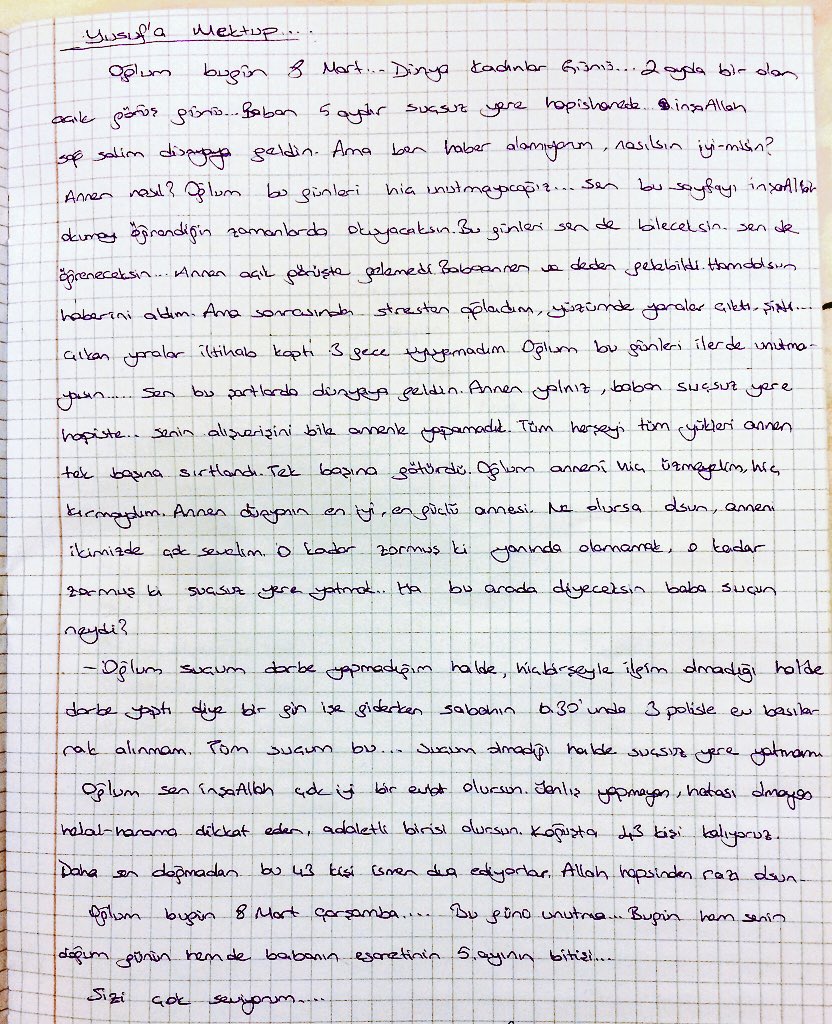 Yusuf'a Mektup....
Oğlum bugün 8 Mart... Dünya Kadınlar Günü... 2 ayda bir olan
açık görüş günü... Baban 5 aydır suçsuz yere hapishanede. inşaAllah
sağ salim dünyaya geldin. Ama ben haber alamıyorum, nasılsın iyi-misin?
Annen nasıl? Oğlum bu günleri hiç unutmayacağız... Sen bu sayfayı inşaAllah
okumayı öğrendiğin zamanlarda okuyacaksın. Bu günleri sen de bileceksin. sen de
öğreneceksin... Annen açık görüşte gelemedi. Babaannen ve deden gelebildi. Hamdolsun
haberini aldım. Ama sonrasında stresten ağladım, yüzümde yaralar çıktı. şişti....
Çıkan yaralar iltihab kaptı 3 gece uyuyamadım. Oğlum bu günleri ilerde unutma-
yasın..... Sen bu şartlarda dünyaya geldin. Annen yalnız, baban suçsuz yere
hapiste... senin alışverişini bile annenle yapamadık. Tüm herşeyi tüm yükleri annen
tek başına sırtlandı. Tek başına götürdü. Oğlum anneni hiç üzmeyelim, hiç
kırmayalım. Annen dünyanın en iyi, en güçlü annesi. Ne olursa olsun, anneni
ikimizde çok sevelim. O kadar zormuş ki yanında olamamak, o kadar
zormuş ki suçsuz yere yatmak.. Ha bu arada diyeceksin baba suçun
neydi?
- Oğlum suçum darbe yapmadığım halde, hiçbirşeyle ilgim olmadığı halde
darbe yaptı diye bir gün işe giderken sabahın 6.30'unda 3 polisle ev basıla-
rak alınmam. Tüm suçum bu... Suçum olmadığı halde suçsuz yere yatmam
Oğlum sen inşaAllah çok iyi bir evlat olursun. Yanlış yapmayan, hatası olmayan
helal-harama dikkat eden, adaletli birisi olursun. Koğuşta 43 kişi kalıyoruz.
Daha sen doğmadan bu 43 kişi ismen dua ediyorlar. Allah hepsinden razı olsun.
Oğlum bugün 8 Mart Çarşamba.... Bu günü unutma... Bugün hem senin
doğum günün hem de babanın esaretinin 5. ayının bitişi...
Sizi çok seviyorum....